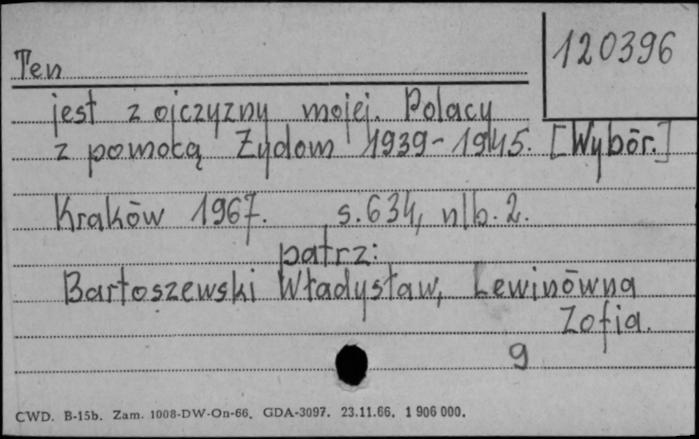 120396
Ten
jest z ojczyzny mojej. Polacy
z pomocą Żydom 1939-1945. [Wybór.]
Kraków 1967. s.634, nlb. 2.
patrz:
Bartoszewski Władysław, Lewinówna
Zofia.
9
CWD. B-15b. Zam. 1008-DW-On-66. GDA-3097. 23.11.66. 1 906 000.